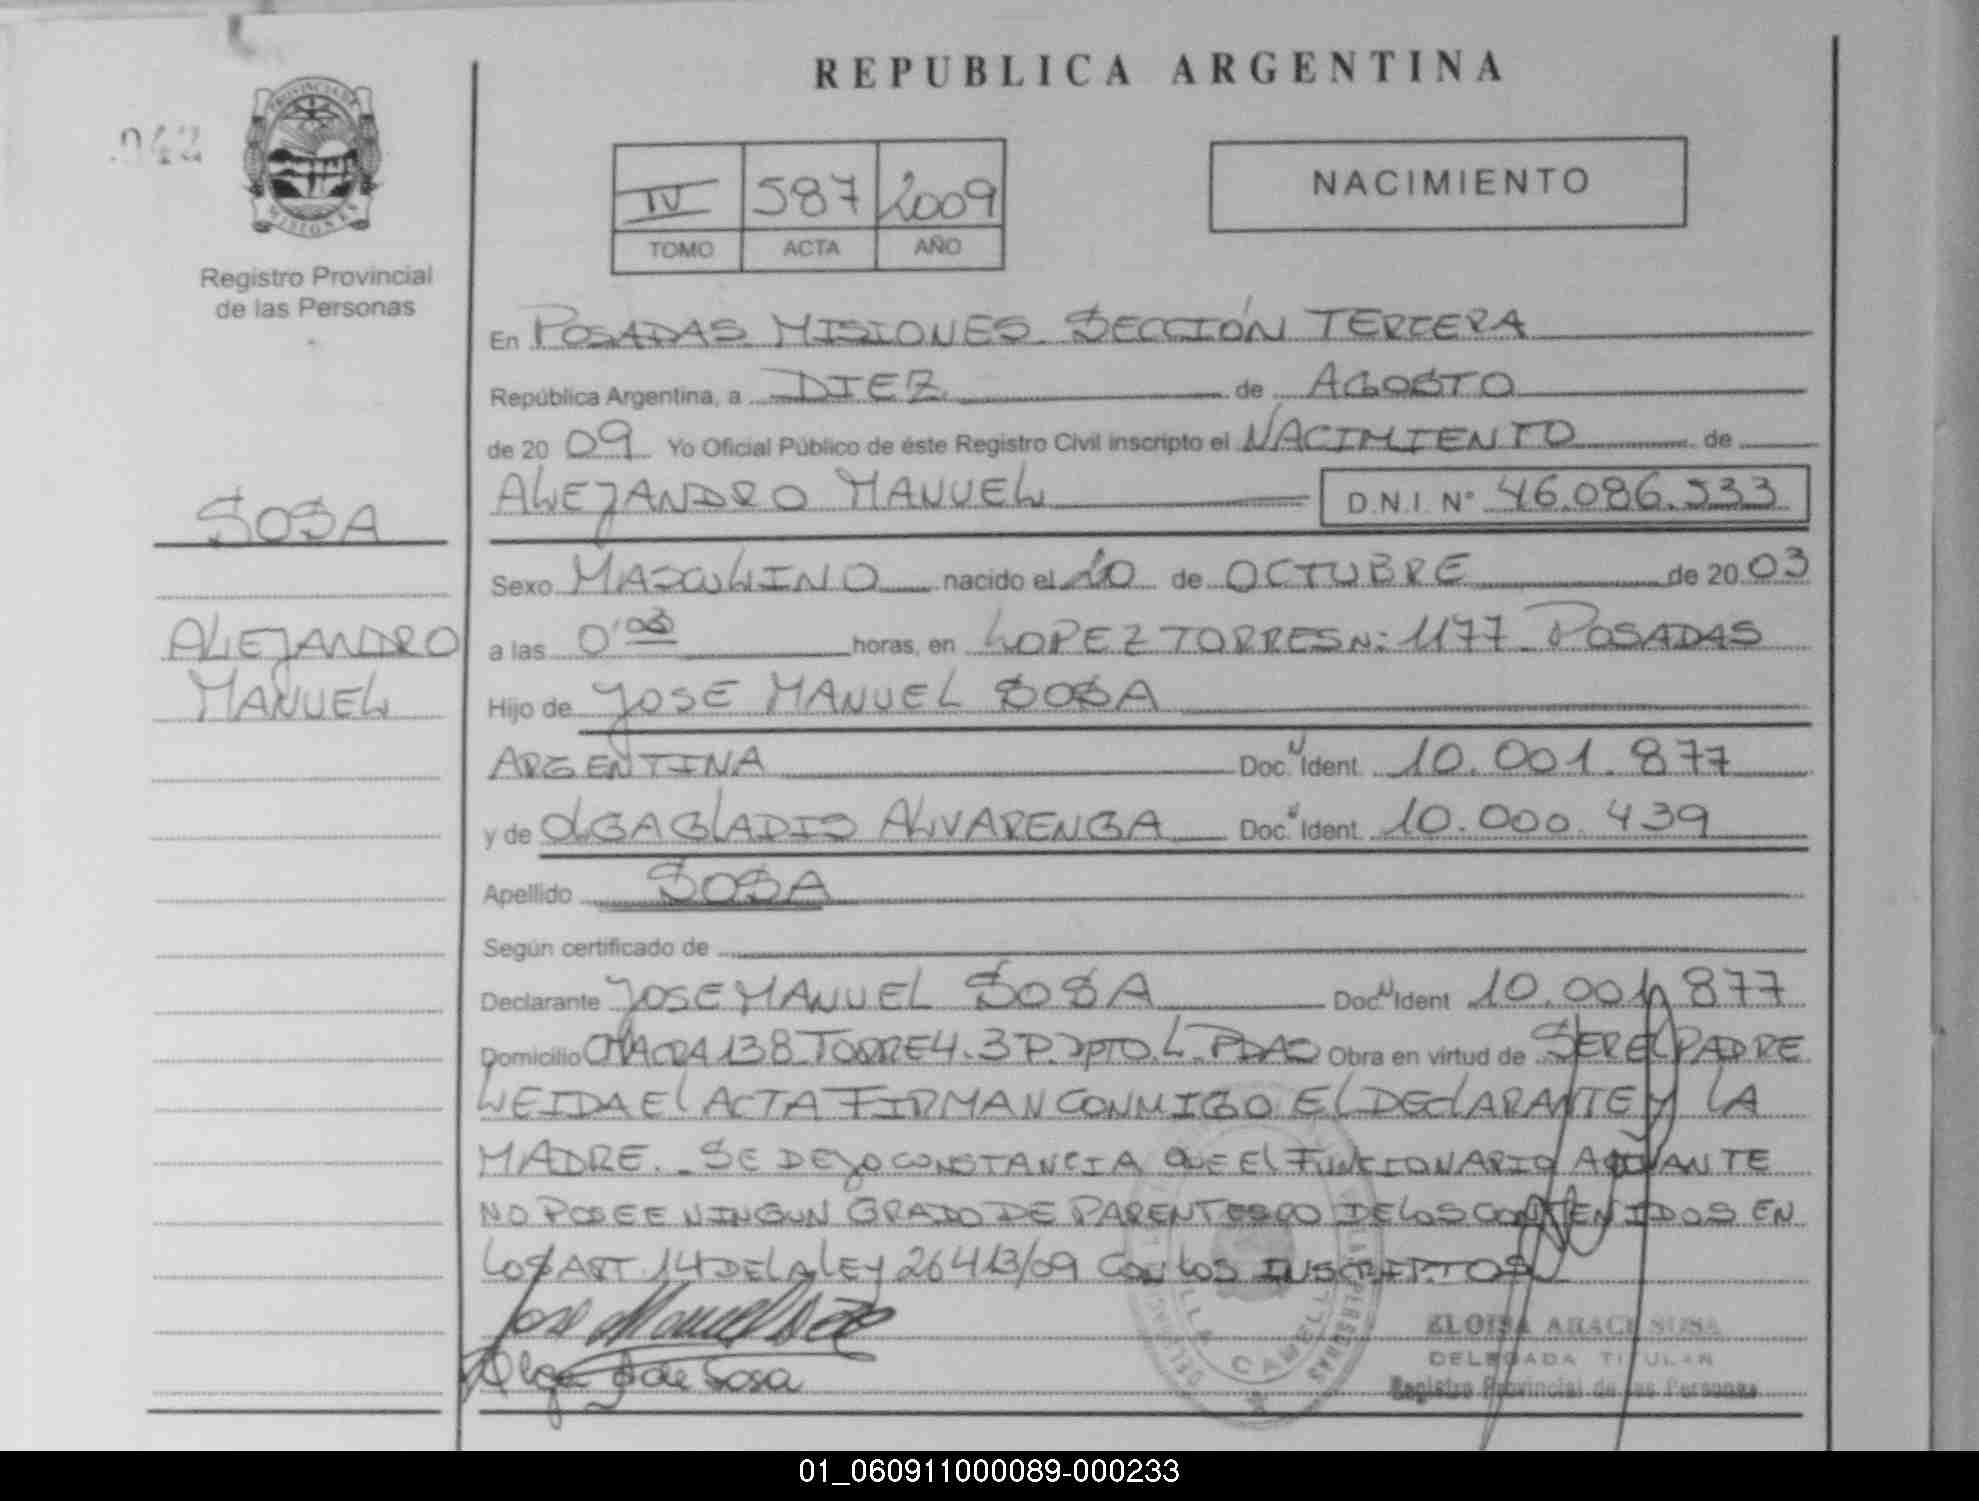 REPUBLICA ARGENTINA
042
PROVINCIA DE
MISIONES
NACIMIENTO
IV 587 2009
TOMO ACTA AÑO
Registro Provincial
de las Personas
En POSADAS MISIONES. SECCIÓN TERCERA
República Argentina, a DIEZ de AGOSTO
de 2009 Yo Oficial Público de éste Registro Civil inscripto el NACIMIENTO de
ALEJANDRO MANUEL D.N.I. Nº 46.086.533
SOSA
Sexo MASCULINO nacido el 20 de OCTUBRE de 2003
ALEJANDRO
MANUEL
a las 0'03 horas, en LOPEZ TORRES N: 1177. POSADAS
Hijo de JOSE MANUEL SOSA
ARGENTINA Doc. N Ident. 10.001.877
y de OLGA GLADIS ALVARENGA Doc. N Ident. 10.000.439
Apellido SOSA
Según certificado de
Declarante JOSE MANUEL SOSA Doc. N Ident 10.001.877
Domicilio CHACRA 138 TORRE 4. 3 P. DPTO. L. PDAS Obra en virtud de SER EL PADRE
LEIDA EL ACTA FIRMAN CONMIGO EL DECLARANTE Y LA
MADRE. SE DEJO CONSTANCIA QUE EL FUNCIONARIO ACTUANTE
NO POSEE NINGUN GRADO DE PARENTESCO DE LOS CONTENIDOS EN
LOS ART. 14 DE LA LEY 26413/09 CON LOS INSCRIPTOS
Jose Manuel Sosa
Olga A de Sosa
VILLA CABELLO
DE LAS PERSONAS
ELOISA ARACI SOSA
DELEGADA TITULAR
Registro Provincial de las Personas
01_060911000089-000233